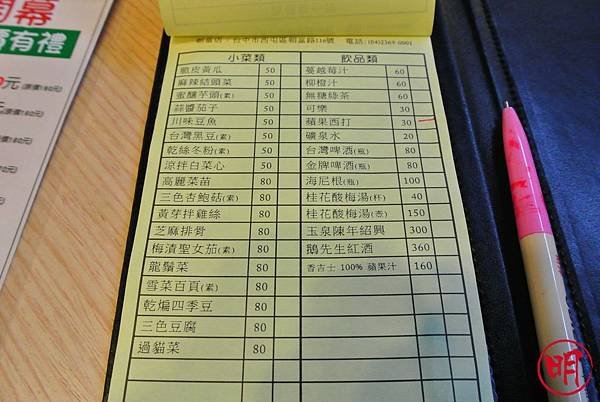 開幕
有禮
元(原價180元)
朝富店:台中市西屯區朝富路116號 電話:(04)2369-0001
小菜類 飲品類
脆皮黃瓜 50 蔓越莓汁 60
麻辣結頭菜 50 柳橙汁 60
蜜釀芋頭(素) 50 無糖綠茶 60
蒜醬茄子 50 可樂 30
川味豆魚 50 蘋果西打 30
台灣黑豆(素) 50 礦泉水 20
乾絲冬粉(素) 50 台灣啤酒(瓶) 80
涼拌白菜心 50 金牌啤酒(瓶) 80
高麗菜苗 80 海尼根(瓶) 100
三色杏鮑菇(素) 80 桂花酸梅湯(杯) 40
黃芽拌雞絲 80 桂花酸梅湯(壺) 150
芝麻排骨 80 玉泉陳年紹興 300
梅漬聖女茄(素) 80 鵝先生紅酒 360
龍鬚菜 80 香吉士 100% 蘋果汁 160
雪菜百頁(素) 80
乾煸四季豆 80
三色豆腐 80
過貓菜 80
明